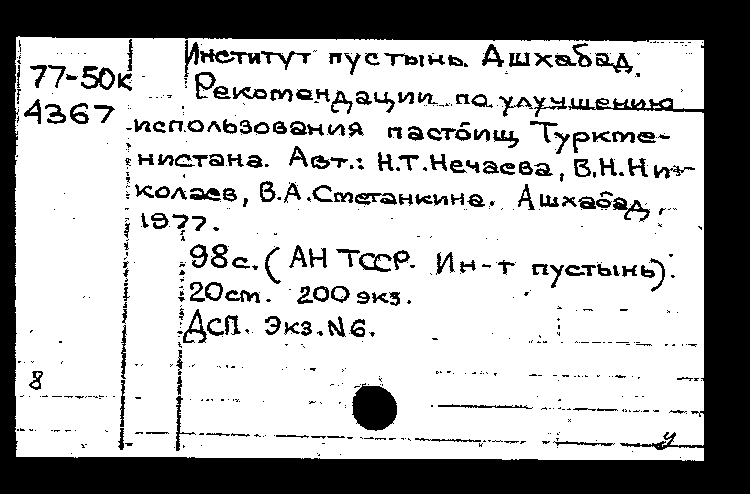 Институт пустынь. Ашхабад.
77-50к
Рекомендации по улучшению
4367
использования пастбищ Туркме-
нистана. Авт.: Н.Т.Нечаева, В.Н.Ни-
колаев, В.А.Сметанкина. Ашхабад,
1977.
98с. (АН ТССР. Ин-т пустынь).
20см. 200 экз.
ДСП. Экз.N6.
8
у